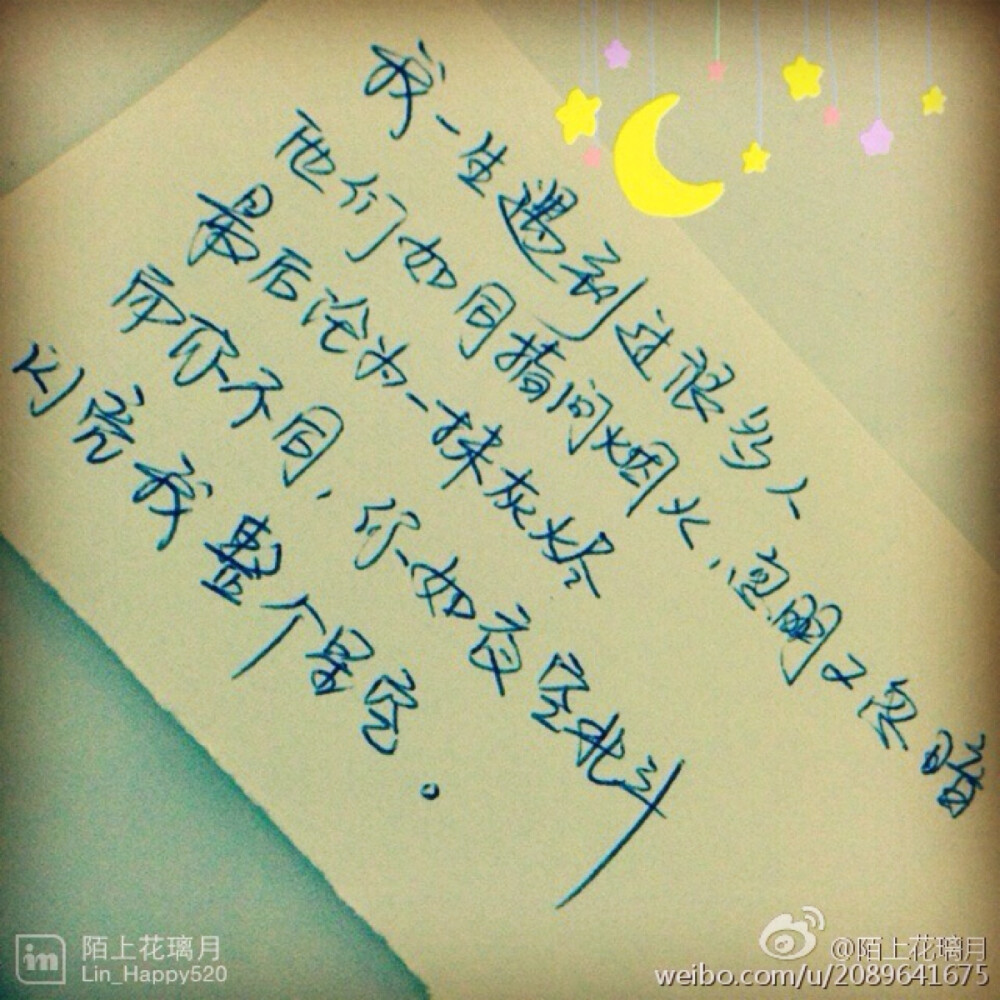 我一生遇到过很多人
他们如同指间烟火,忽明又忽暗
最后沦为一抹灰烬
而你不同,你如夜空北斗
闪亮我整个星空。
im 陌上花璃月
Lin_Happy520
@陌上花璃月
weibo.com/u/2089641675